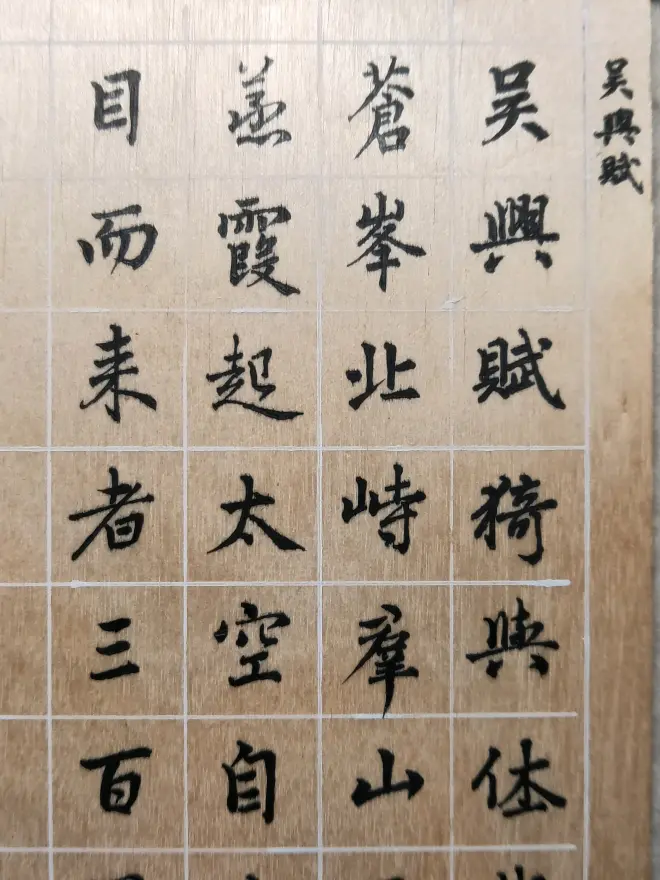 吴興賦
吴興賦猗與休
蒼峯北峙羣山
蒸霞起太空自
目而来者三百